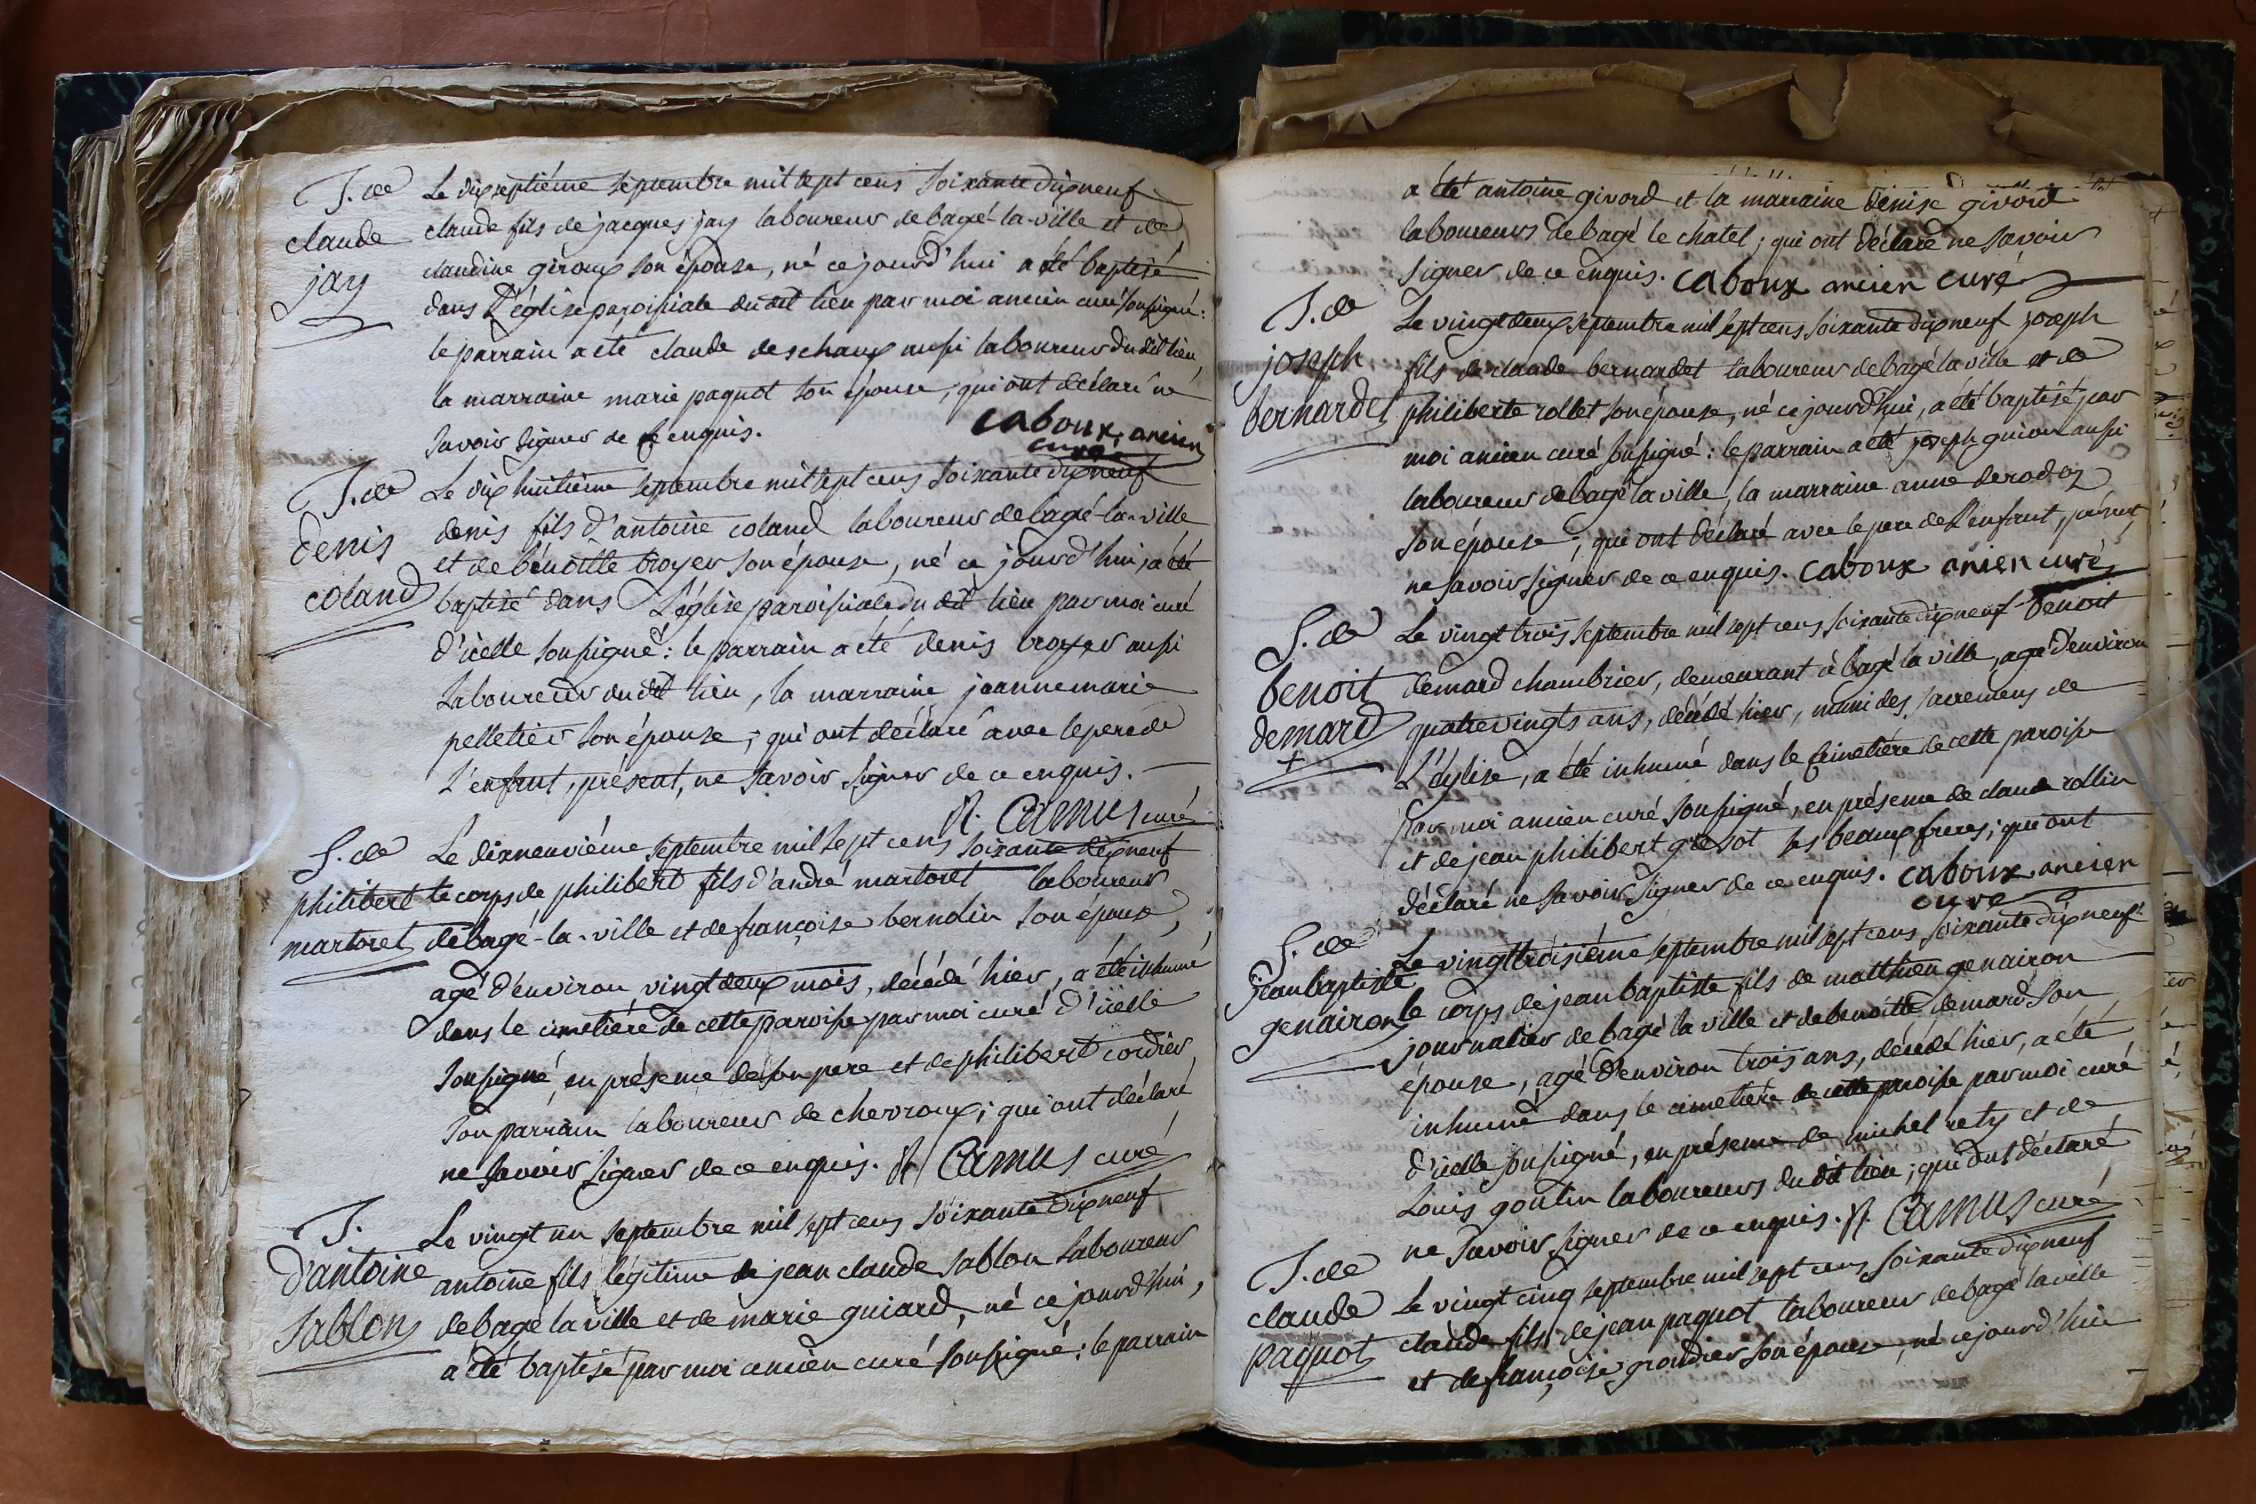 Le dixseptiéme septembre mil sept cens soixante dixneuf
claude fils de jacques jay laboureur de bagé-la-ville et de
claudine giroux son épouse, né ce jourd'hui a été baptisé
dans L'église paroissiale du dit lieu par moi ancien curé soussigné :
le parrain a été claude deschaux aussi laboureur du dit lieu,
la marraine marie paquot son épouse, qui ont déclaré ne
savoir signer de ce enquis.
caboux, ancien
curé
J. de
claude
jay
Le dix huitiéme septembre mil sept cens soixante dixneuf
denis fils d'antoine coland laboureur de bagé-la-ville
et de bénoitte broyer son épouse, né ce jourd'hui, a été
baptisé dans L'église paroissiale du dit lieu par moi curé
d'icelle soussigné : le parrain a été denis broyer aussi
Laboureur du dit lieu, la marraine jeannemarie
pelletier son épouse, qui ont déclaré avec le pere de
L'enfant, présent, ne savoir signer de ce enquis.
Camus curé
J. de
denis
coland
Le dixneuviéme septembre mil sept cens soixante dixneuf
le corps de philibert fils d'andré martoret laboureur
de bagé-la-ville et de françoise bernolin son épouse,
agé d'environ vingtdeux mois, décédé hier, a été inhumé
dans le cimetiére de cette paroisse par moi curé d'icelle
soussigné, en présence de son pere et de philibert cordier
son parrain laboureur de chevroux ; qui ont déclaré
ne savoir signer de ce enquis. Camus curé
S. de
philibert
martoret
Le vingt un septembre mil sept cens soixante dixneuf
antoine fils légitime de jean claude sablon Laboureur
de bagé la ville et de marie guiard, né ce jourd'hui,
a été baptisé par moi ancien curé soussigné : le parrain
J.
d'antoine
sablon
a été antoine givord et la marraine denise givord
laboureurs de bagé le chatel ; qui ont déclaré ne savoir
signer de ce enquis. caboux ancien curé
Le vingtdeux septembre mil sept cens soixante dixneuf joseph
fils de claude bernardet laboureur de bagé la ville et de
philiberte rollet son épouse, né ce jourd'hui, a été baptisé par
moi ancien curé soussigné : le parrain a été joseph guion aussi
laboureur de bagé la ville, la marraine anne derodoz
son épouse ; qui ont déclaré avec le pere de L'enfant, présent,
ne savoir signer de ce enquis. caboux ancien curé
J. de
joseph
bernardet
Le vingt trois septembre mil sept cens soixante dixneuf benoit
demard chambrier, demeurant à bagé la ville, agé d'environ
quatrevingts ans, décédé hier, muni des sacremens de
L'église, a été inhumé dans le cimetiére de cette paroisse
par moi ancien curé soussigné, en présence de claude rollin
et de jean philibert ses beaux freres ; qui ont
déclaré ne savoir signer de ce enquis. caboux ancien
curé
S. de
benoit
demard
+
Le vingttroisiéme septembre mil sept cens soixante dixneuf
le corps de jean baptiste fils de matthieu genairon
journalier de bagé la ville et de benoitte demard son
épouse, agé d'environ trois ans, décédé hier, a été
inhumé dans le cimetiére de cette paroisse par moi curé
d'icelle soussigné, en présence de michel rety et de
Louis goulin laboureurs du dit lieu ; qui ont déclaré
ne savoir signer de ce enquis. Camus curé
S. de
jean baptiste
genairon
Le vingt cinq septembre mil sept cens soixante dixneuf
claude fils de jean paquot laboureur de bagé la ville
et de françoise grondier son épouse, né ce jourd'hui
J. de
claude
paquot